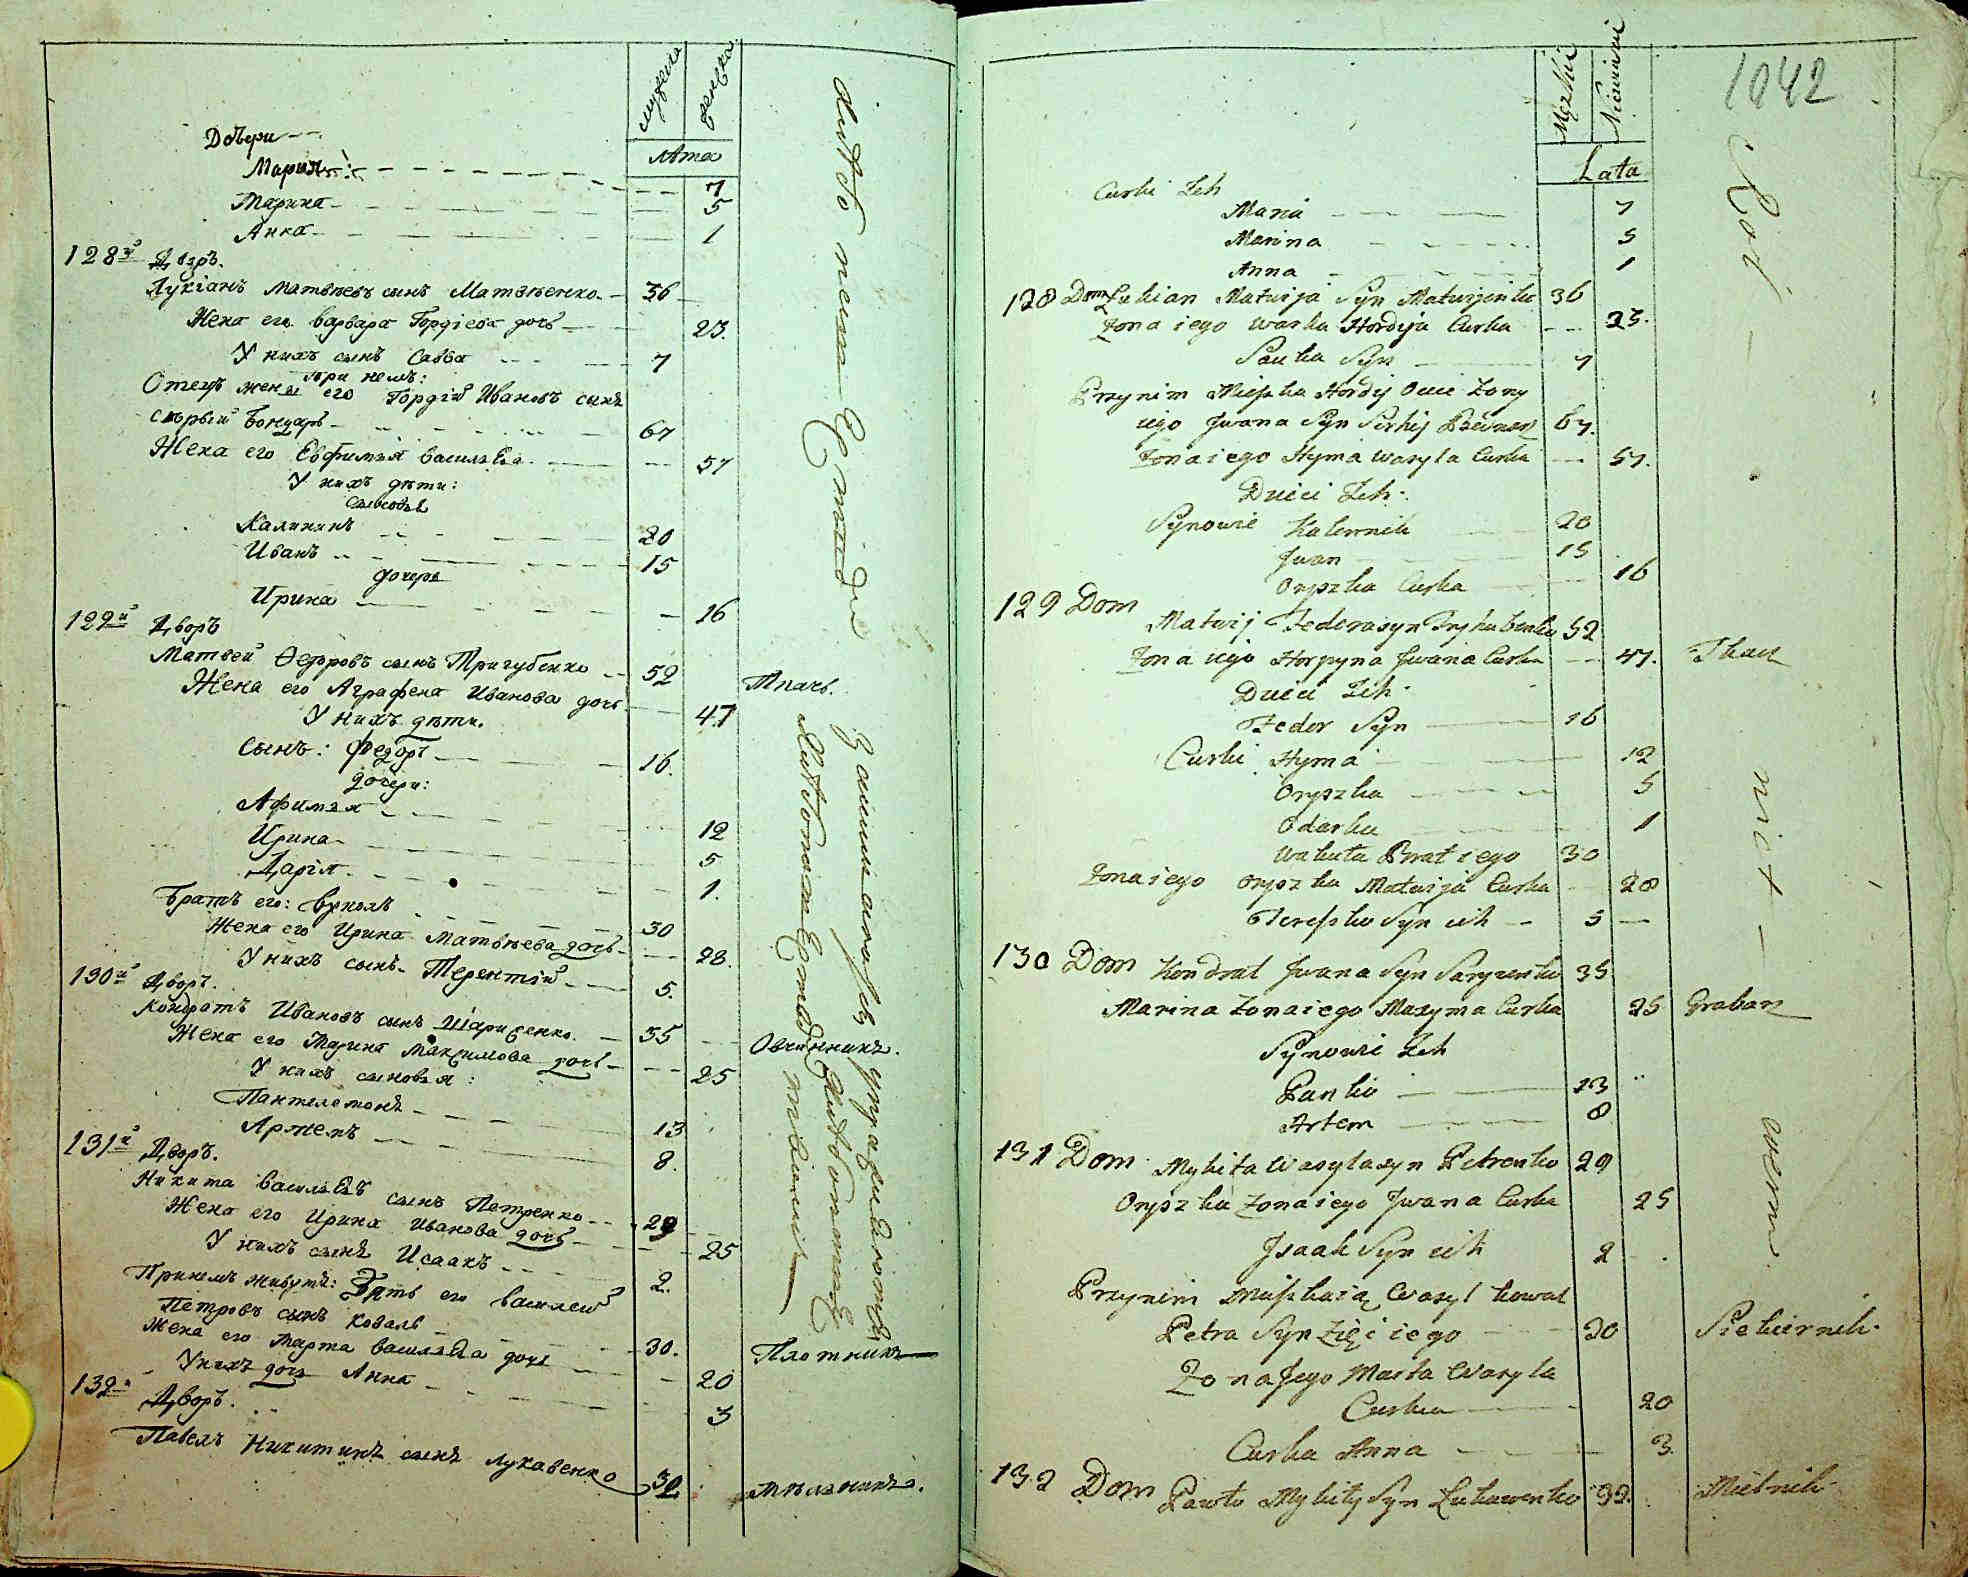 мужеска
женска
лѣта
Дочери
Мария 7
Марина 5
Анна 1
128й Дворъ.
Лукіанъ Матвѣевъ сынъ Матвѣенко 36
Жена его Варвара Гордіева дочь 23.
У нихъ сынъ Савва 7
при немъ:
Отецъ жены его Гордій Ивановъ сынъ
Сѣрый Бондарь 67
Жена его Евфимья Васильева 57
У нихъ дѣти:
сыновья
Калиникъ 20
Иванъ 15
дочерь
Ирина 16
129й Дворъ
Матвей Ѳедоровъ сынъ Тригубенко 52 Ткачь.
Жена его Аграфена Иванова дочь 47
У нихъ дѣти.
Сынъ: Федоръ 16.
дочери:
Афимья 12
Ирина 5
Дарія 1.
Братъ его: Вуколъ 30
Жена его Ирина Матвѣева дочь 28.
У нихъ сынъ Терентій 5.
130й Дворъ.
Кондратъ Ивановъ сынъ 35 Овчинникъ.
Жена его Марина Максимова дочь 25
У нихъ сыновья:
Пантелемонъ 13
Артемъ 8.
131й Дворъ.
Никита Васильевъ сынъ Петренко 29
Жена его Ирина Иванова дочь 25
У нихъ сынъ Исаакъ 2.
При немъ живутъ: Зять его Василий
Петровъ сынъ Коваль 30. Плотникъ
Жена его Марта Васильева дочь 20
У нихъ дочь Анна 3
132й Дворъ.
Павелъ Никитинъ сынъ Лукавенко 32 Мѣльникъ.
1042
Męzkie
Niewieście
Lata
Curki Ich
Maria 7
Marina 5
Anna 1
128 Dom Łukian Matwija Syn Matwijenko 36
Żona iego Warka Hordyja Curka 23.
Sawka Syn 7
Przynim Mieszka Hordij Ociec Żony
iego Jwana Syn Sirkij Bednarz 67.
Żona iego Hyma Wasyla Curka 57.
Dzieci Ich:
Synowie Kalennik 20
Jwan 15
Oryszka Curka 16
129 Dom
Matwij Fedora syn Tryhubenko 52
Żona iego Horpyna Jwana Curka 47. Tkacz
Dzieci Ich
Fedor Syn 16
Curki Hyma 12
Oryszka 5
Odarka 1
Wakuła Brat iego 30
Żona iego Oryszka Matwija Curka 28
Tereszko Syn ich 5
130 Dom Kondrat Jwana Syn 35
Marina Żona iego Maxyma Curka 25 Grabarz
Synowie Ich
Panko 13
Artem 8
131 Dom Mykita Wasyla syn Petrenko 29
Oryszka Żona iego Jwana Curka 25
Jsaak Syn ich 2
Przynim Mieszkaią Wasyl Kowal
Petra Syn Zięć iego 30 Siekiernik.
Żona Jego Marta Wasyla
Curka 20
Curka Anna 3.
132 Dom Pawło Mykity Syn Łukawenko 32. Mielnik